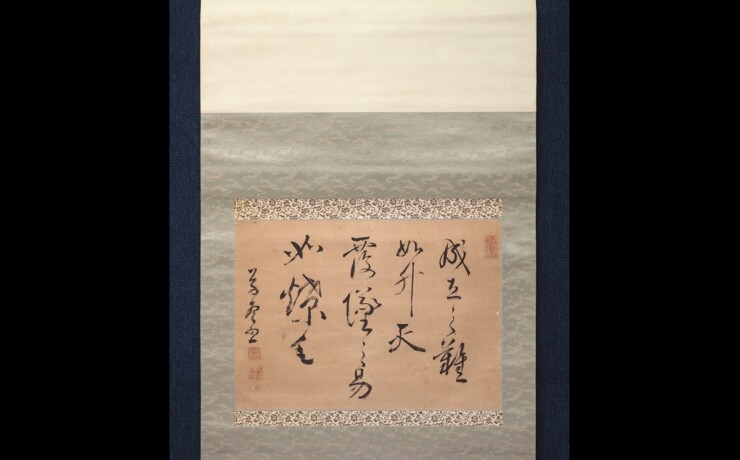 成立之難
如升天
覆墜之易
如燎毛